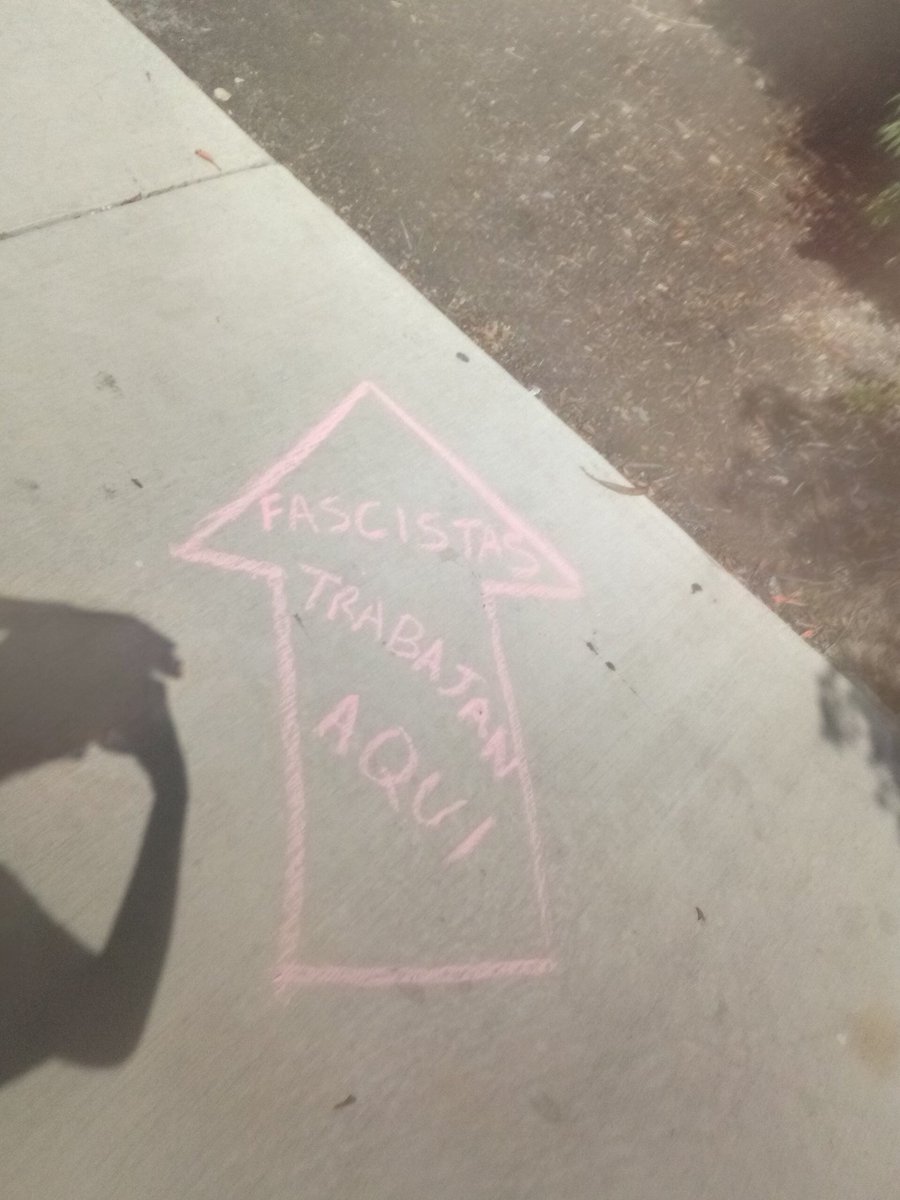 FASCISTAS
TRABAJAN
AQUI